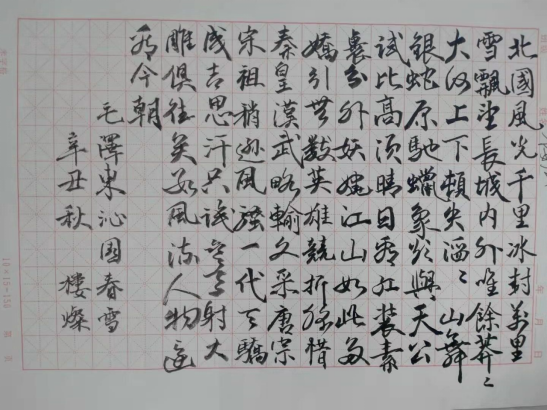 北國風光千里冰封萬里
雪飄望長城内外唯餘莽〻
大河上下頓失滔〻山舞
銀蛇原馳蠟象欲與天公
試比高須晴日看紅裝素
裹分外妖嬈江山如此多
嬌引無數英雄競折腰惜
秦皇漢武略輸文采唐宗
宋祖稍遜風騷一代天驕
成吉思汗只識彎弓射大
雕俱往矣數風流人物還
看今朝
毛澤東沁園春雪
辛丑秋 樓燦